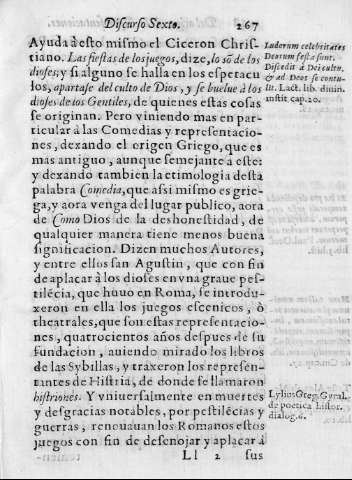 Discurso Sexto. 267
Ayuda à esto mismo el Ciceron Chris-
tiano. Las fiestas de los juegos, dize, lo sõ de los
dioses; y si alguno se halla en los espetacu
los, apartase del culto de Dios, y se buelue à los
dioses de los Gentiles, de quienes estas cosas
se originan. Pero viniendo mas en par-
ticular à las Comedias y representacio-
nes, dexando el origen Griego, que es
mas antiguo, aunque semejante a este:
y dexando tambien la etimologia desta
palabra Comedia, que assi mismo es grie-
ga, y aora venga del lugar publico, aora
de Como Dios de la deshonestidad, de
qualquier manera tiene menos buena
significacion. Dizen muchos Autores,
y entre ellos san Agustin, que con fin
de aplacar à los dioses en vna graue pes-
tilẽcia, que huuo en Roma, se introdu-
xeron en ella los juegos escenicos, ò
theatrales, que son estas representacio-
nes, quatrocientos años despues de su
fundacion, auiendo mirado los libros
de las Sybillas, y traxeron los represen-
tantes de Histria, de donde se llamaron
histriones. Y vniuersalmente en muertes
y desgracias notables, por pestilẽcias y
guerras, renouauan los Romanos estos
juegos con fin de desenojar y aplacar à
Ll 2 sus
Ludorum celebritates
Deorum festa sunt.
Discedit à Dei cultu,
& ad Deos se contu-
lit. Lact. lib. diuin.
instit cap. 20.
Lylius Greg. Gyral.
de poetica histor.
dialog. 6.